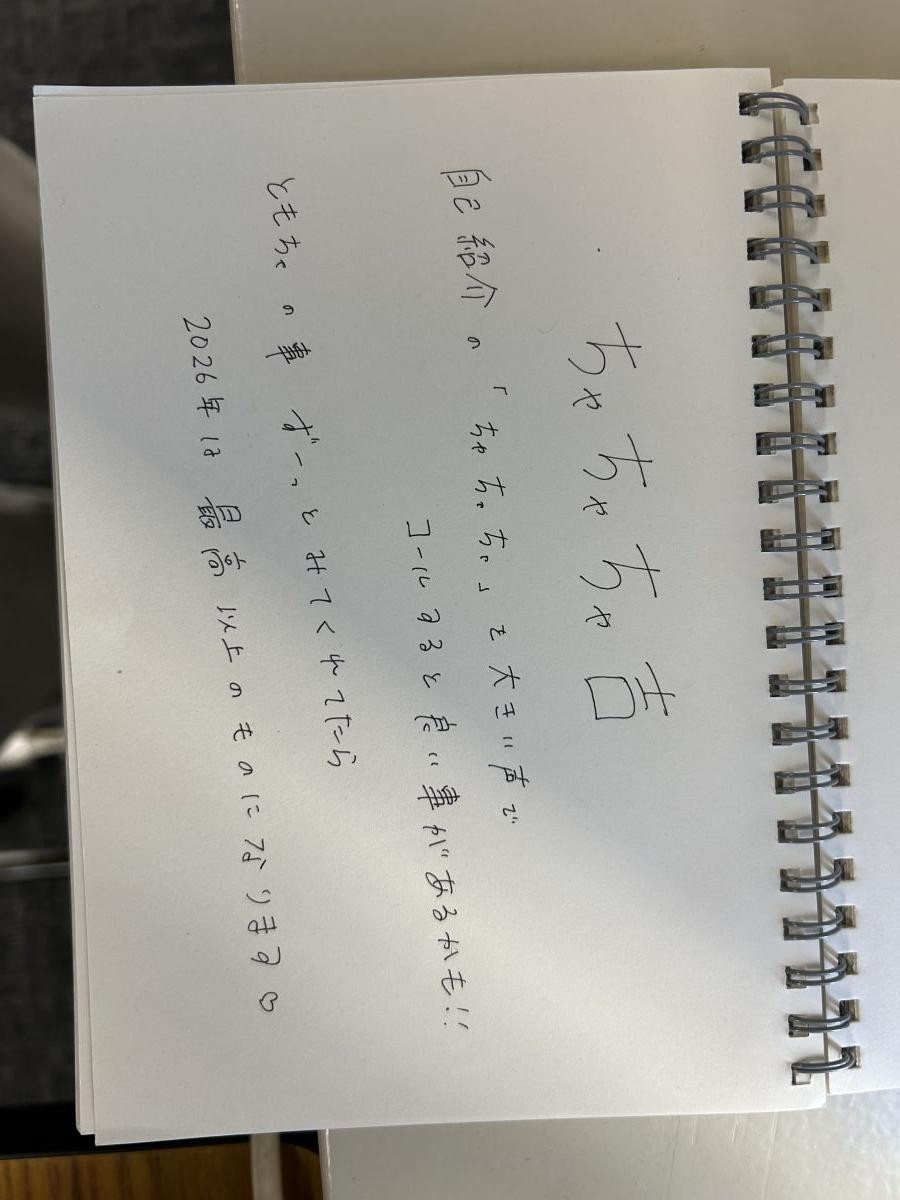 ちゃちゃちゃ吉
自己紹介の「ちゃちゃちゃ」を大きい声で
コールすると良い事があるかも!!
ともちゃの事 ずーっとみてくれてたら
2026年は最高以上のものになります♡